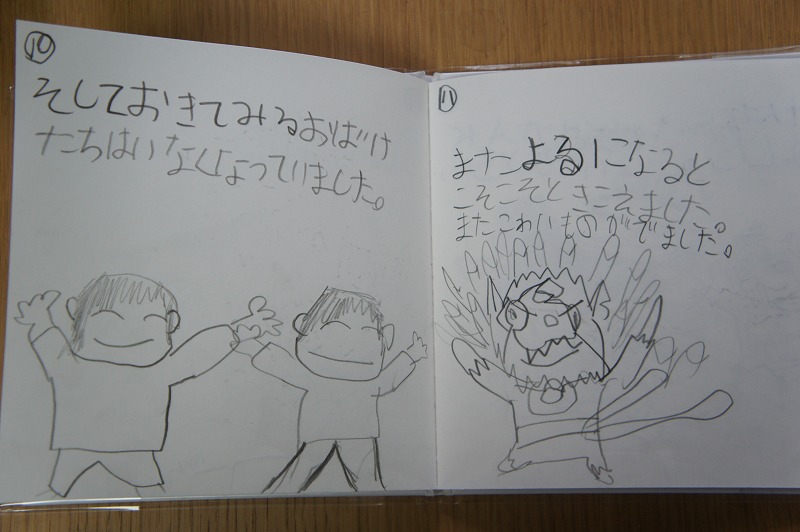 10
そしておきてみるおばけ
たちはいなくなっていました。
11
またよるになると
こそこそときこえました。
またこわいものがでました。